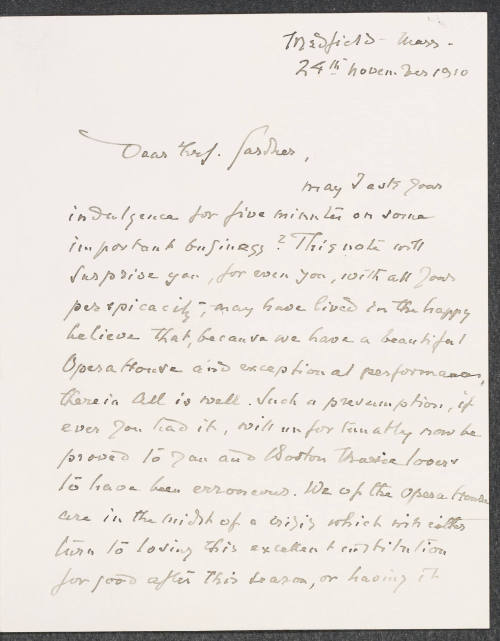 Medfield - Mass -
24th november 1910
Dear Mrs. Gardner,
may I ask your
indulgence for five minutes on some
important business? This note will
surprise you, for even you, with all your
perspicacity, may have lived in the happy
believe that, because we have a beautiful
Opera House and exceptional performances,
therein all is well. Such a presumption, if
ever you had it, will unfortunatly now be
proved to you and Boston Music lovers
to have been erroneous. We of the Opera House
are in the midst of a crisis which will either
turn to losing this excellent institution
for good after this season, or having it